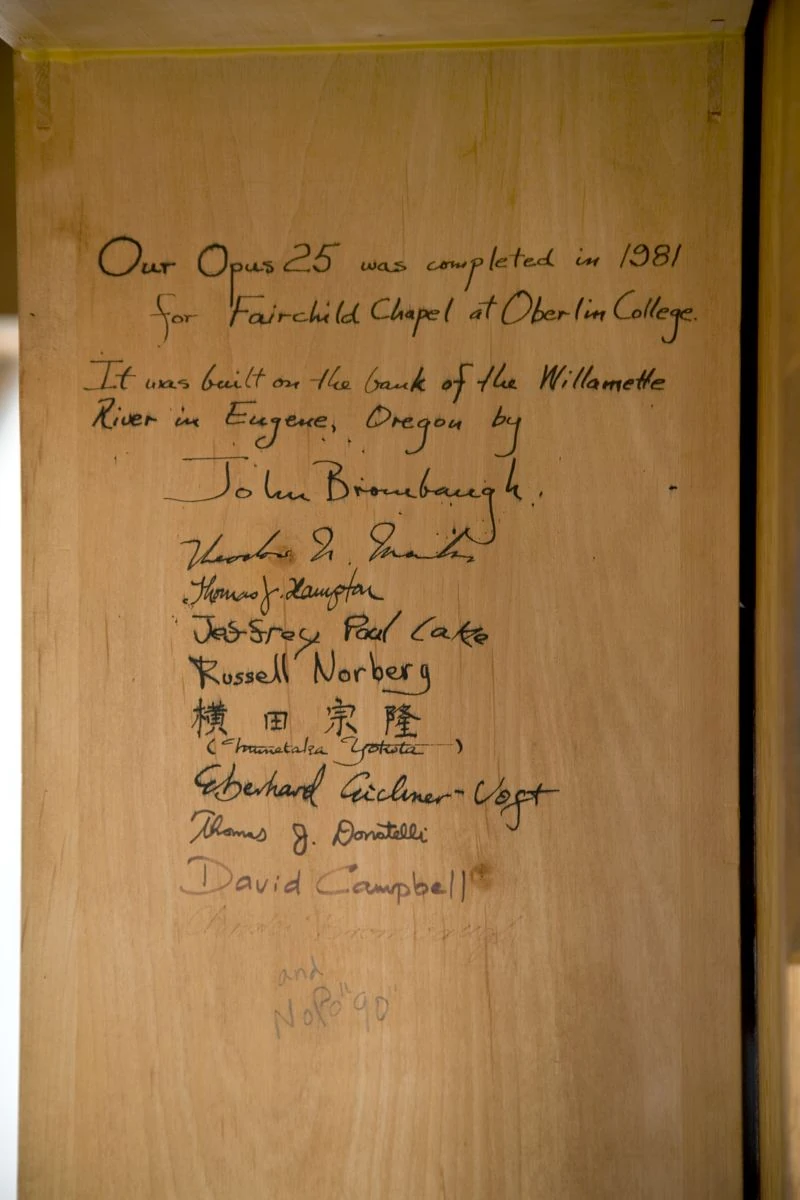 Our Opus 25 was completed in 1981
for Fairchild Chapel at Oberlin College.
It was built on the bank of the Willamette
River in Eugene, Oregon by
John Brombaugh.
Thomas J. Hampton
Jeffrey Paul Lake
Russell Norberg
横田宗隆
(Munetaka Yokota)
Eberhard -Vogt
Thomas J. Donatelli
David Campbell
Brombaugh
and
"90"